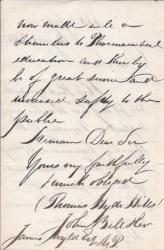 now made into a
stimulus to Pharmaceutical
education and thereby
be of great service and
increased safety to the
public
I remain Dear Sir
Yours very faithfully
& much obliged
(Thomas Hyde Hills)
John Bell & Co
James
M.P.